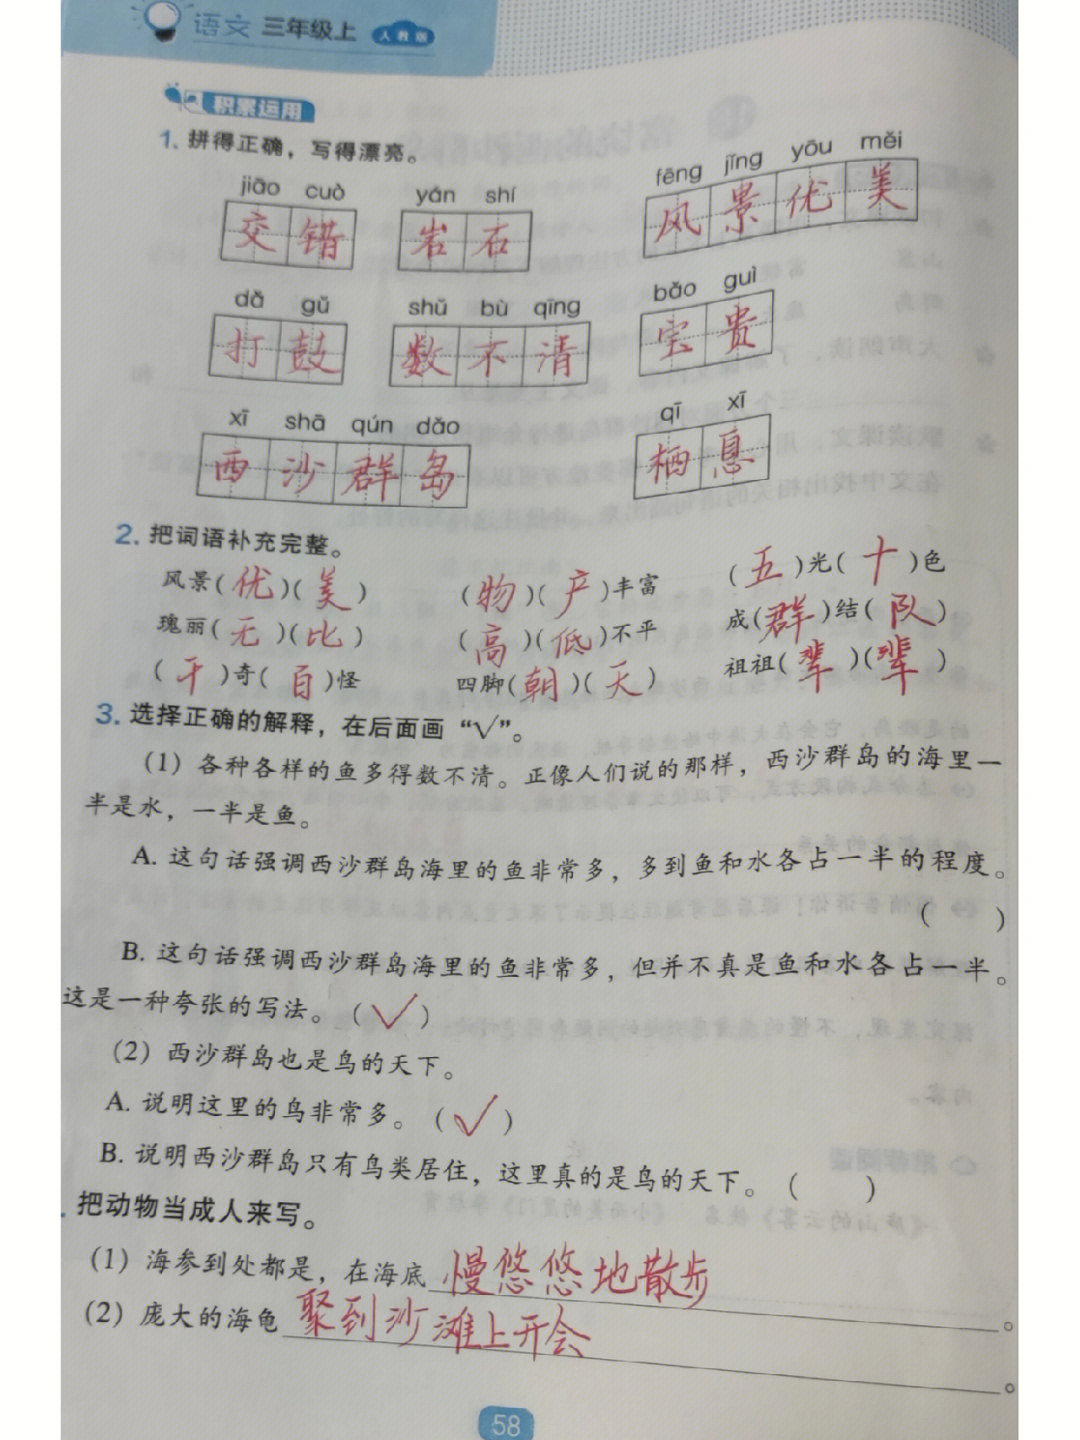 语文 三年级上 人教版
积累运用
1. 拼得正确，写得漂亮。
jiāo cuò yán shí fēng jǐng yōu měi
交错 岩石 风景优美
dǎ gǔ shǔ bù qīng bǎo guì
打鼓 数不清 宝贵
xī shā qún dǎo qī xī
西沙群岛 栖息
2. 把词语补充完整。
风景(优)(美) (物)(产)丰富 (五)光(十)色
瑰丽(无)(比) (高)(低)不平 成(群)结(队)
(千)奇(百)怪 四脚(朝)(天) 祖祖(辈)(辈)
3. 选择正确的解释，在后面画“√”。
(1) 各种各样的鱼多得数不清。正像人们说的那样，西沙群岛的海里一
半是水，一半是鱼。
A. 这句话强调西沙群岛海里的鱼非常多，多到鱼和水各占一半的程度。
( )
B. 这句话强调西沙群岛海里的鱼非常多，但并不真是鱼和水各占一半。
这是一种夸张的写法。(√)
(2) 西沙群岛也是鸟的天下。
A. 说明这里的鸟非常多。(√)
B. 说明西沙群岛只有鸟类居住，这里真的是鸟的天下。( )
. 把动物当成人来写。
(1) 海参到处都是，在海底慢悠悠地散步。
(2) 庞大的海龟聚到沙滩上开会。
58